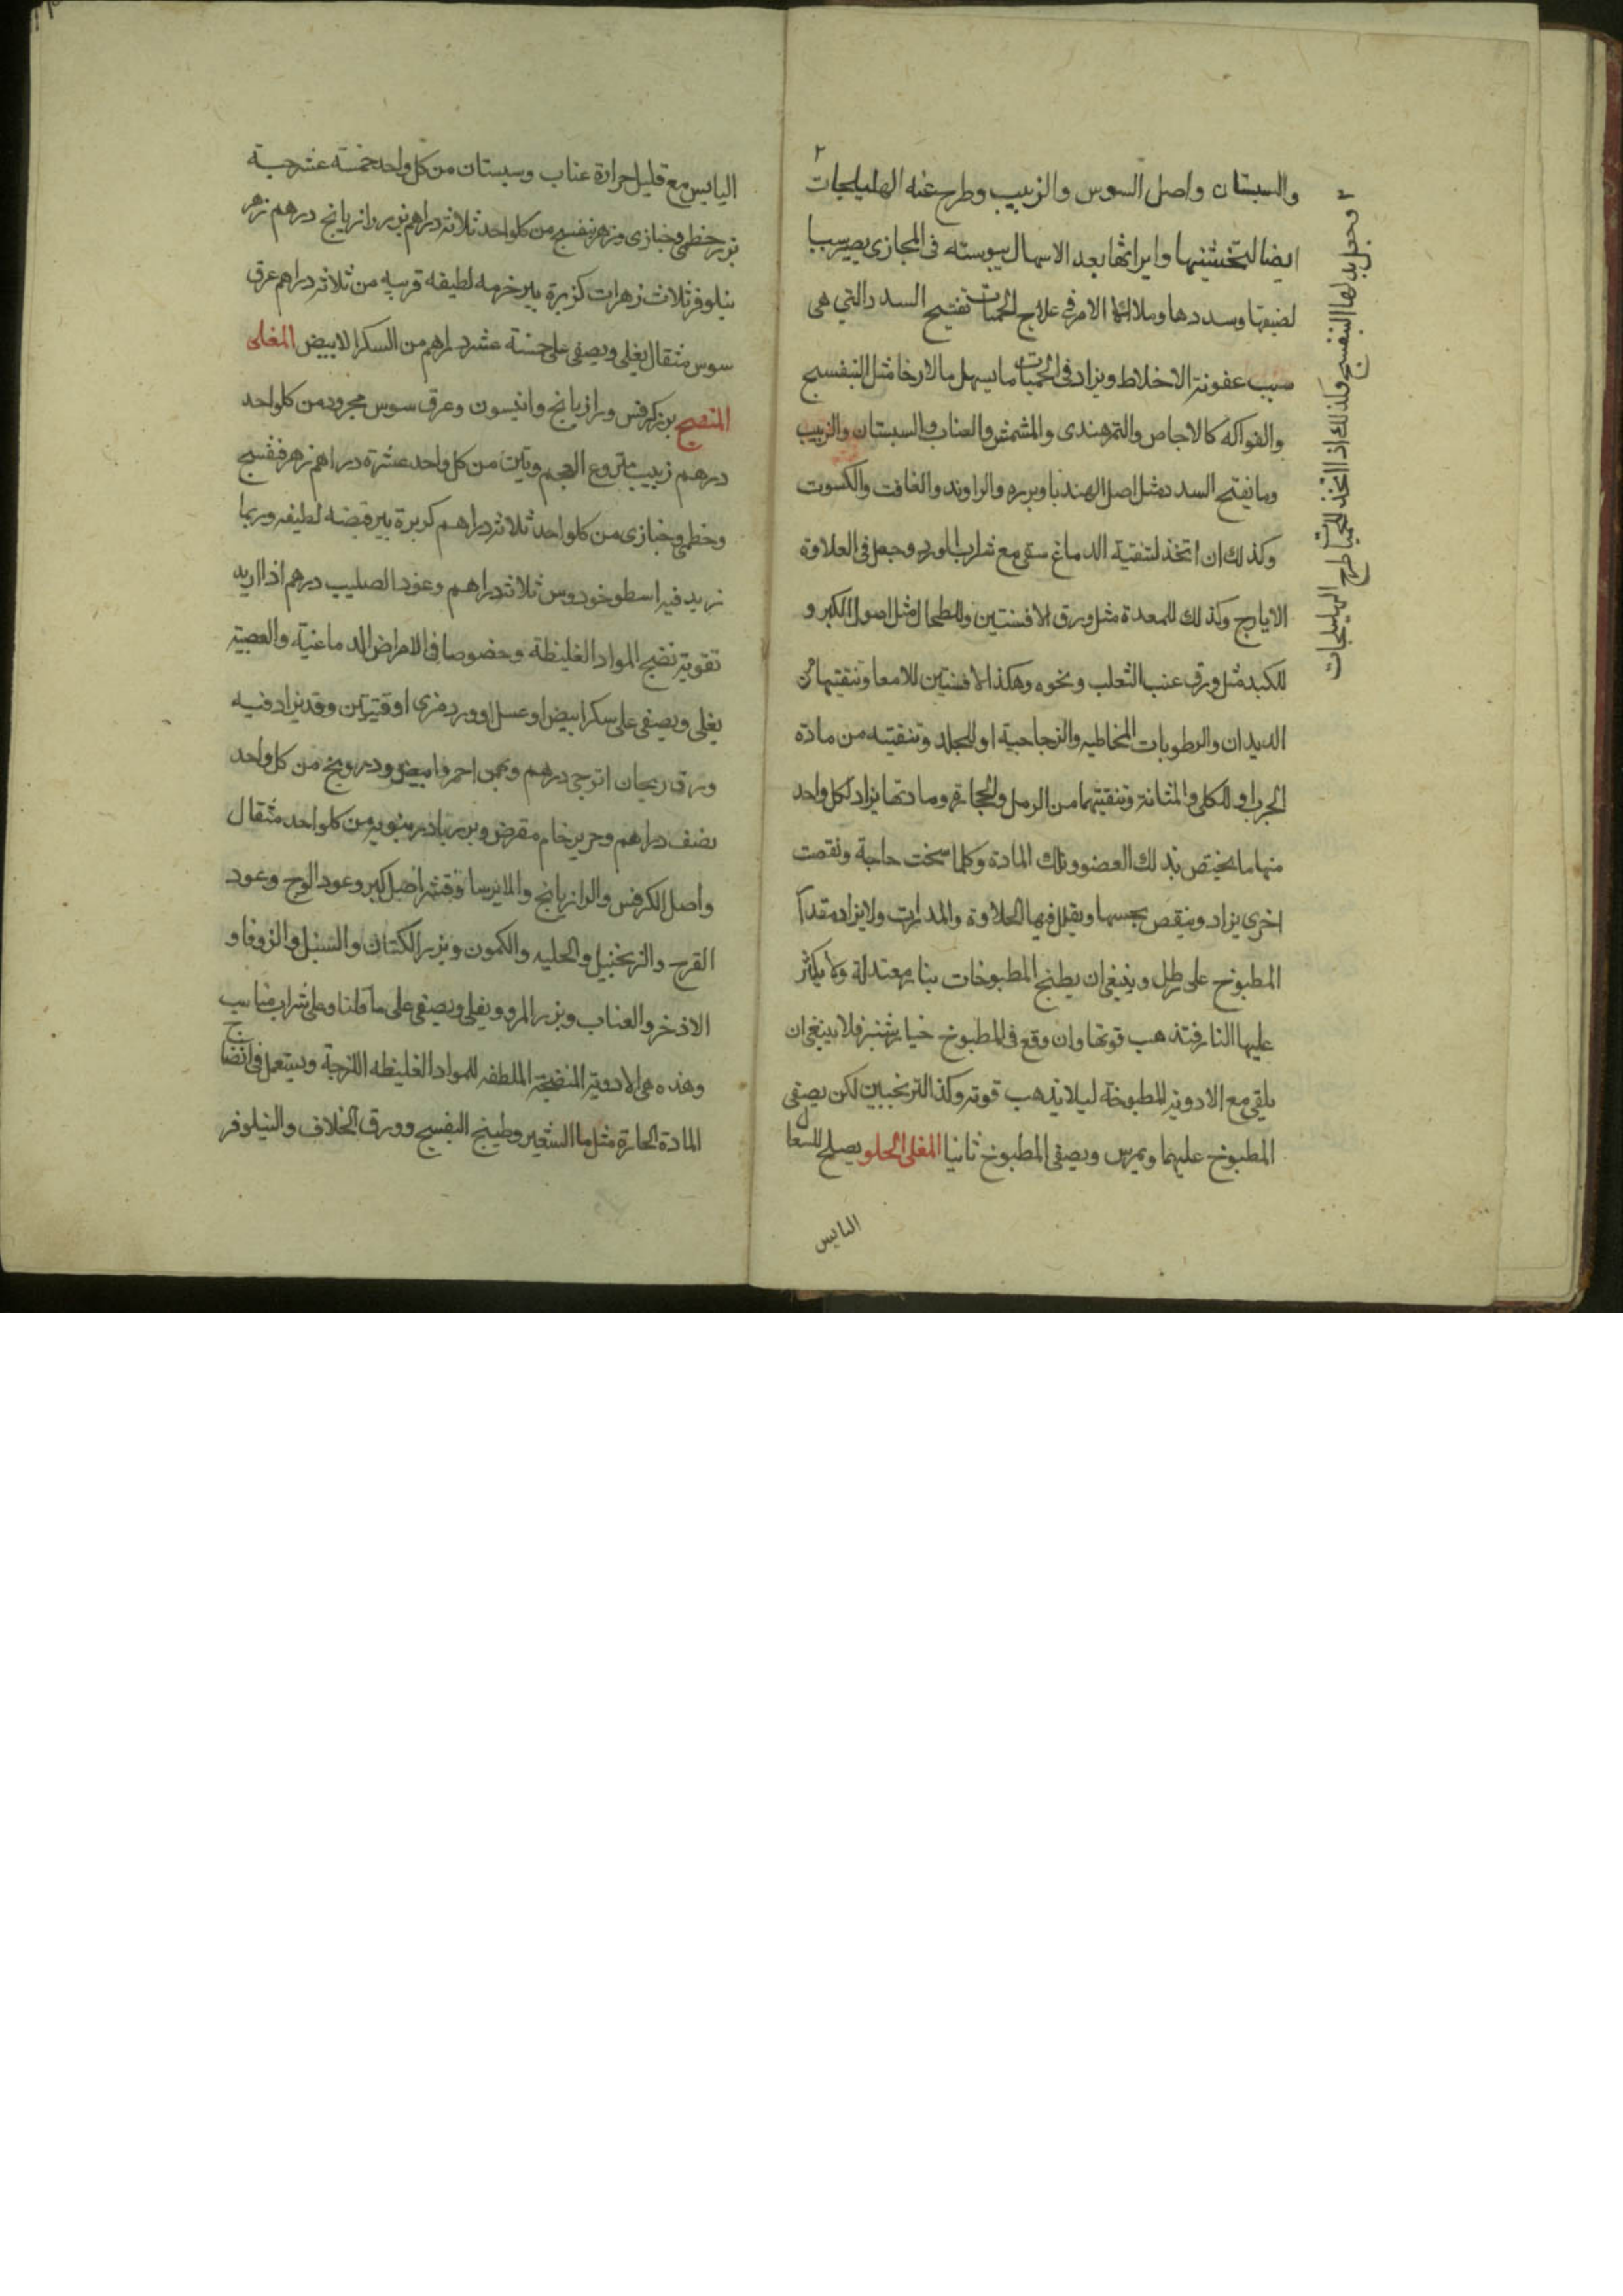 والسبستان واصل السوس والزبيب وطرح عنه الهليلجات
ايضا لتخشينها وايراثها بعد الاسهال يبوسته فى المجازى يصير سببا
لضيقها وسددها وملاك الامر فى علاج الحميات تفتيح السدد التي هى
سبب عفونة الاخلاط ويزاد فى الحميات ما يسهل بالارخا مثل النبفسج
والفواكه كالاجاص والتمرهندى والمشمش والعناب والسبستان والزبيب
وما يفتح السدد مثل اصل الهندبا وبزره والراوند والغافت والكسوت
وكذلك ان اتخذ لتنقية الدماغ سقى مع شراب الورد وجعل فى العلاوة
الايارج وكذلك للمعدة مثل ورق الافسنتين وللطحال مثل اصول الكبر و
للكبد مثل ورق عنب الثعلب ونحوه وهكذا الافسنتين للامعا وتنقيتها من
الديدان والرطوبات المخاطيه والزجاجية او للجلد وتنقيته من مادة
الجرب او للكلى والمثانة وتنقيتهما من الرمل والحجارة ومادتها يزاد لكل واحد
منها ما يختص بذلك العضو وتلك المادة وكلما سخت حاجة ونقصت
اخرى يزاد وينقص بحسبها ويقلل فيها الحلاوة والمدارت ولا يزاد مقدار
المطبوخ على رطل وينبغى ان يطبخ المطبوخات بنار معتدلة ولا يكثر
عليها النار فتذهب قوتها وان وقع فى المطبوخ خيارشنبر فلا ينبغى ان
يلقى مع الادوية المطبوخة ليلا تذهب قوته وكذا الترنجبين لكن يصفى
المطبوخ عليها ويمرس ويصفى المطبوخ ثانيا المغلى الحلو يصلح للسعال
اليابس
وجعل بدلها البنفسج وكذلك اذا اتخذ للحميات طرح الهليلجات
اليابس مع قليل حرارة عناب وسبستان من كل واحد خمسة عشر حبة
بزر خطمى وخبازى وزهر بنفسج من كلواحد ثلاثة دراهم بزر رازيانج درهم زهر
نيلوفر ثلاث زهرات كزبرة بير خرمه لطيفه قريبه من ثلاثه دراهم عرق
سوس مثقال يغلى ويصفى على خمسة عشر دراهم من السكر الابيض المغلى
المنضج بزر كرفس ورازيانج وانيسون وعرق سوس مجرود من كلواحد
درهم زبيب منزوع العجم وتين من كل واحد عشرة دراهم زهر بنفسج
وخطمى وخبازى من كلواحد ثلاثه دراهم كزبرة بير قبضه لطيفه وربما
زيد فيه اسطوخودوس ثلاثة دراهم وعود الصليب درهم اذا اريد
تقوية نضج المواد الغليظة وخصوصا فى الامراض الدماغية والعصبية
يغلى ويصفى على سكر ابيض او عسل او ورد مربى اوقيتين وقد يزاد فيه
ورق ريحان اترجى درهم وبهمن احمر وابيض ودرونج من كل واحد
نصف درهم وحرير خام مقرض وبزر بادرنبويه من كلواحد مثقال
واصل الكرفس والرازيانج والايرسا وقشر اصل كبر وعود الوج وعود
القرح والزنجبيل والحلبه والكمون وبزر الكتان والسنبل والزوفا و
الاذخر والعناب وبزر المرو ويغلى ويصفى على ما قلنا وعلى شراب مناسب
وهذه هى الادوية المنضجة الملطفه للمواد الغليظه اللزجة ويستعمل فى انضاج
المادة الحارة مثل ما الشعير وطبيخ البنفسج وورق الخلاف والنيلوفر